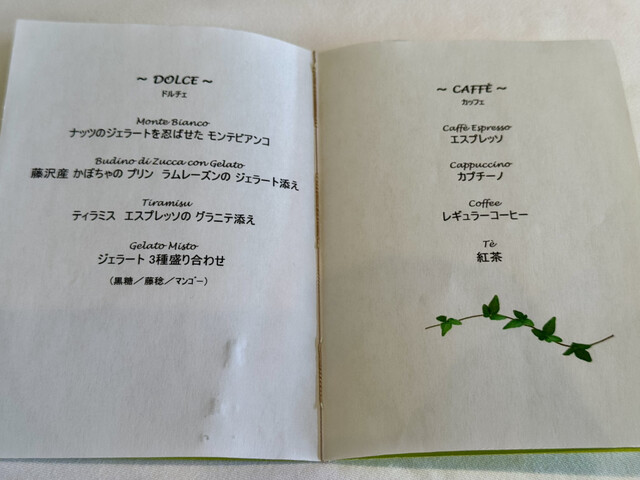 ~ DOLCE ~
ドルチェ
Monte Bianco
ナッツのジェラートを忍ばせた モンテビアンコ
Budino di Zucca con Gelato
藤沢産 かぼちゃの プリン ラムレーズンの ジェラート添え
Tiramisu
ティラミス エスプレッソの グラニテ添え
Gelato Misto
ジェラート 3種盛り合わせ
(黒糖/藤稔/マンゴー)
~ CAFFÈ ~
カッフェ
Caffè Espresso
エスプレッソ
Cappuccino
カプチーノ
Coffee
レギュラーコーヒー
Tè
紅茶